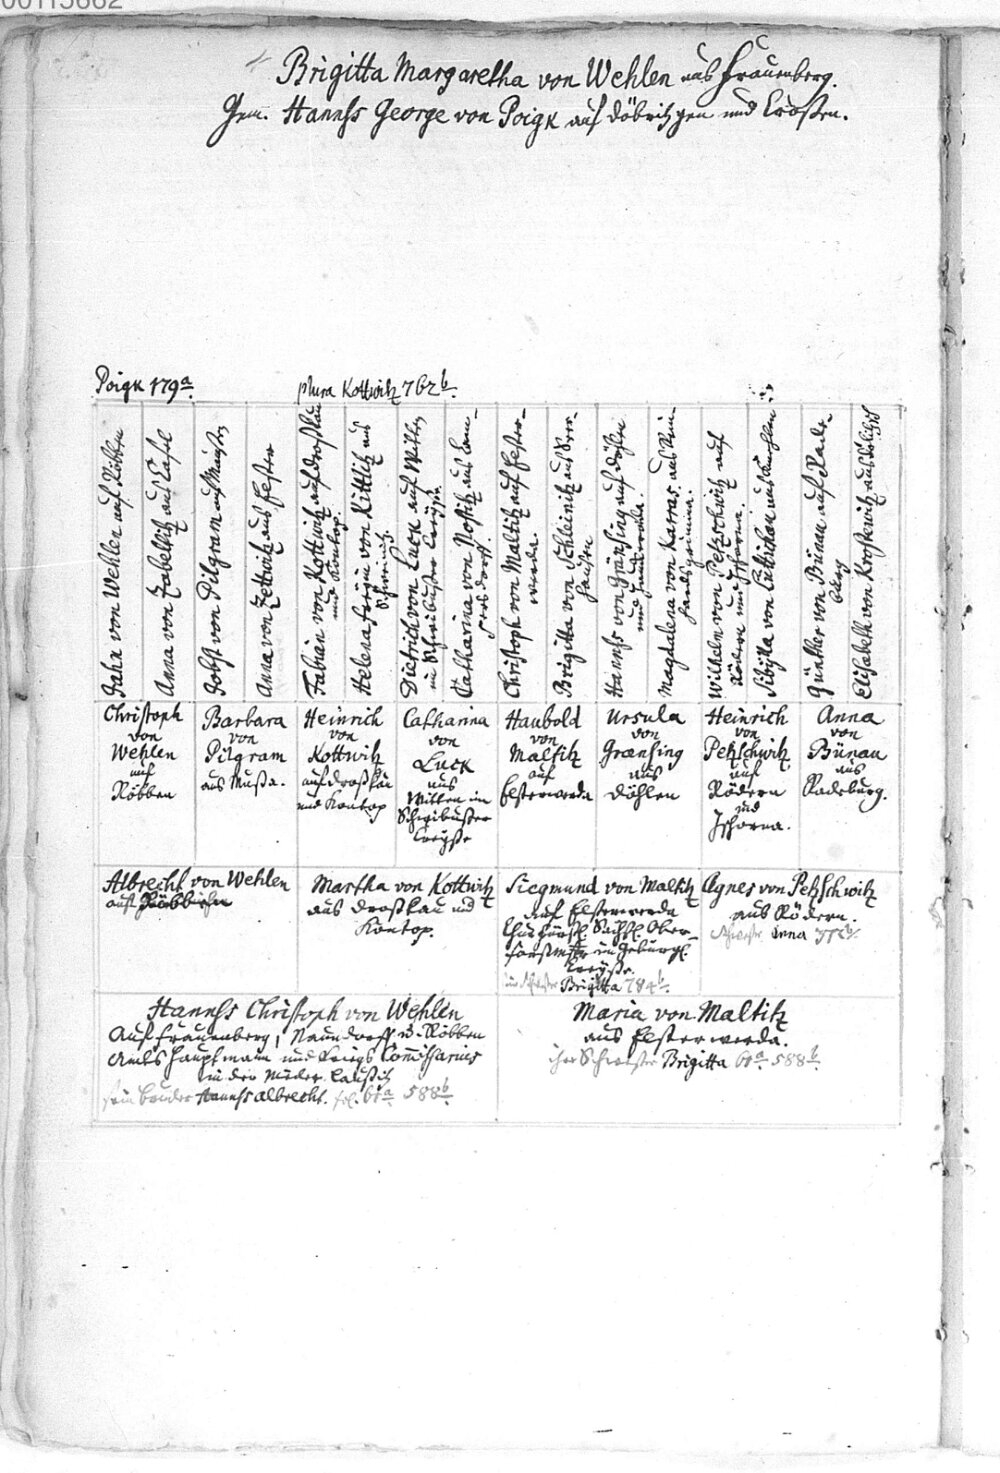 00115662
Brigitta Margaretha von Wehlen aus Frauenberg.
Gem. Hannß George von Poigk auf Döbritzgen und Croßen.
Poigk 179a.
plura Kottwitz 762b.
von Wehlen auf Röbben
Anna von Zabeltitz aus
Jobst von Pilgram auf
Anna von Zettwitz aus
Fabian von Kottwitz auf Droßkau
und Kontop.
Helena von Kittlitz aus
Dietrich von Luck auf Witten
im Schwibußer Creyße
Catharina von Nostitz aus
Christoph von Maltitz auf Elster-
werda.
Brigitta von Schleinitz aus Seer-
hausen
Hannß von Gränsing auf Döhlen
und
Magdalena von Karras aus
Wilhelm von Petzschwitz auf
Rödern und Zschorna.
Sibylla von Lüttichau aus
Günther von Bünau auf Rade-
berg
Elisabeth von Krostewitz aus
Christoph
von
Wehlen
auf
Röbben
Barbara
von
Pilgram
aus Mußa.
Heinrich
von
Kottwitz
auf Droßkau
und Kontop
Catharina
von
Luck
aus
Witten im
Schwibußer
Creyße
Haubold
von
Maltitz
auf
Elsterwerda
Ursula
von
Graensing
aus
Döhlen
Heinrich
von
Petzschwitz
auf
Rödern
und
Zschorna.
Anna
von
Bünau
aus
Radeburg.
Albrecht von Wehlen
auf
Martha von Kottwitz
aus Droßkau und
Kontop.
Siegmund von Maltitz
auf Elsterwerda
Churfürstl. Sächß. Ober-
Forstmstr im Gebürgl.
Creyße.
Brigitta 784b.
Agnes von Petzschwitz
aus Rödern.
Schwester Anna
Hannß Christoph von Wehlen
Auf Frauenberg, Naundorff u. Röbben
Amts Hauptmann und Kriegs Commissarius
in der Nieder Laußitz
sein Bruder Hannß Albrecht. fol. 61a 588b.
Maria von Maltitz
aus Elsterwerda.
ihre Schwester Brigitta 61a 588b.